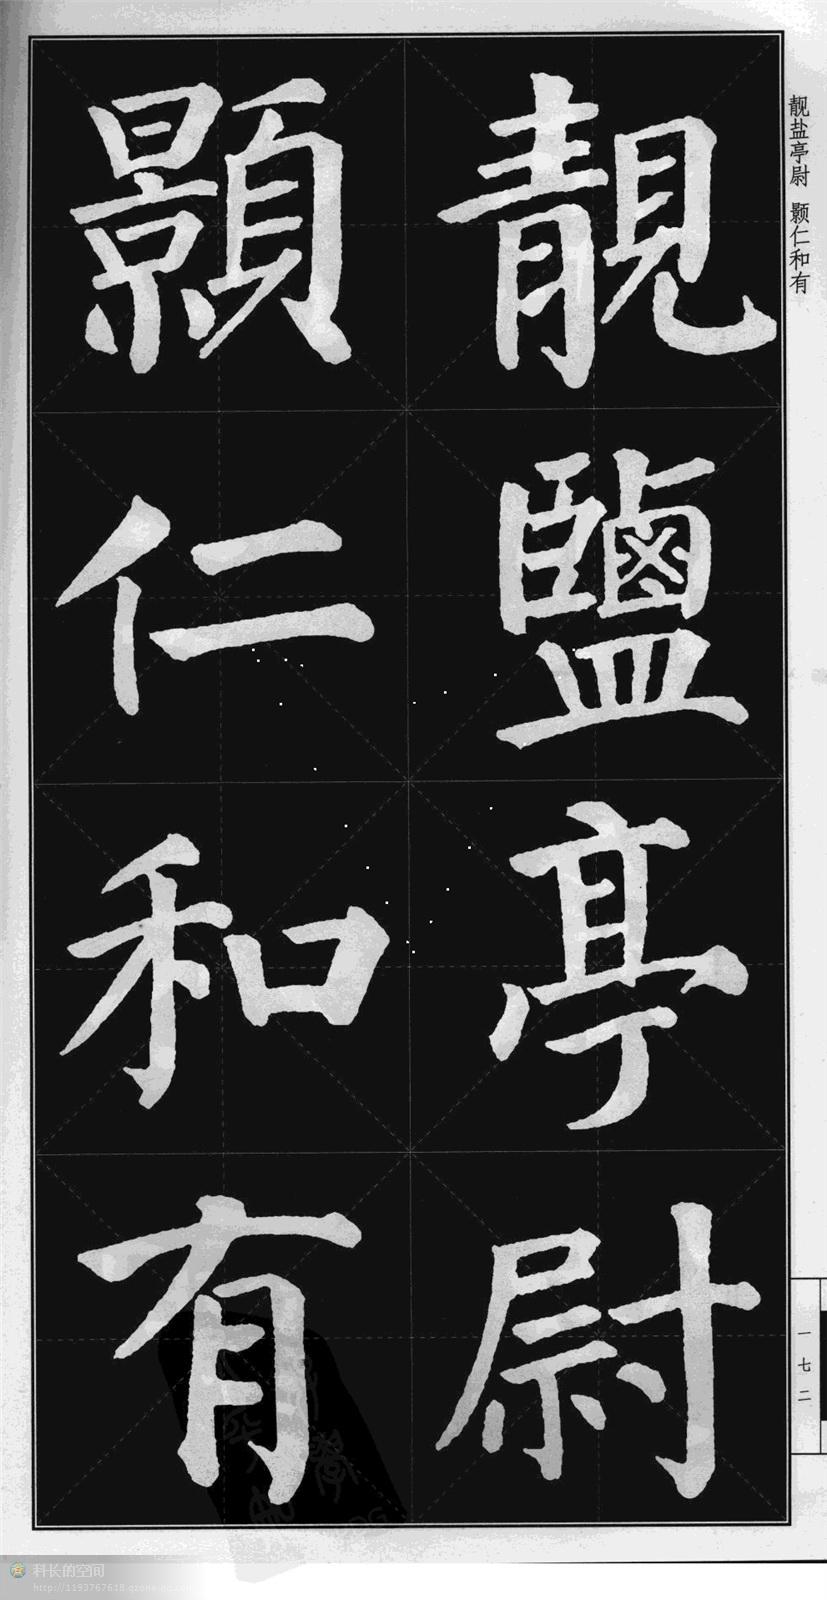 靚鹽亭尉
顥仁和有
靓盐亭尉 颢仁和有
一七二
科长的空间
http://1193767618.qzone.qq.com